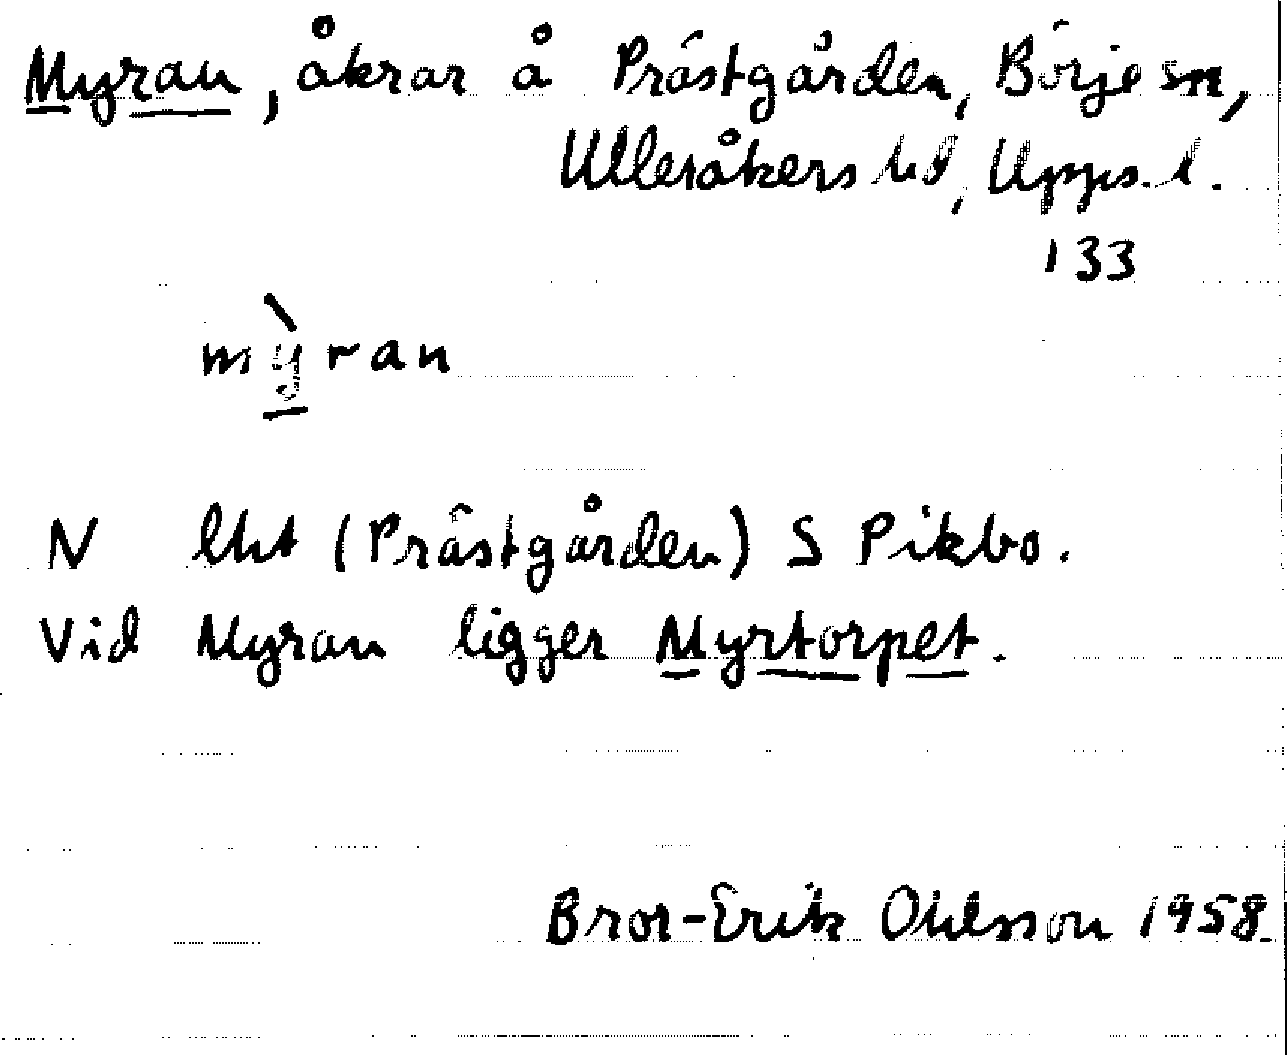 Myran, åkrar å Prästgården, Börje sn,
Ulleråkers hd, Upps. l.
133
mỳran
N lht (Prästgården) S Pikbo.
Vid Myran ligger Myrtorpet.
Bror-Erik Ohlsson 1958